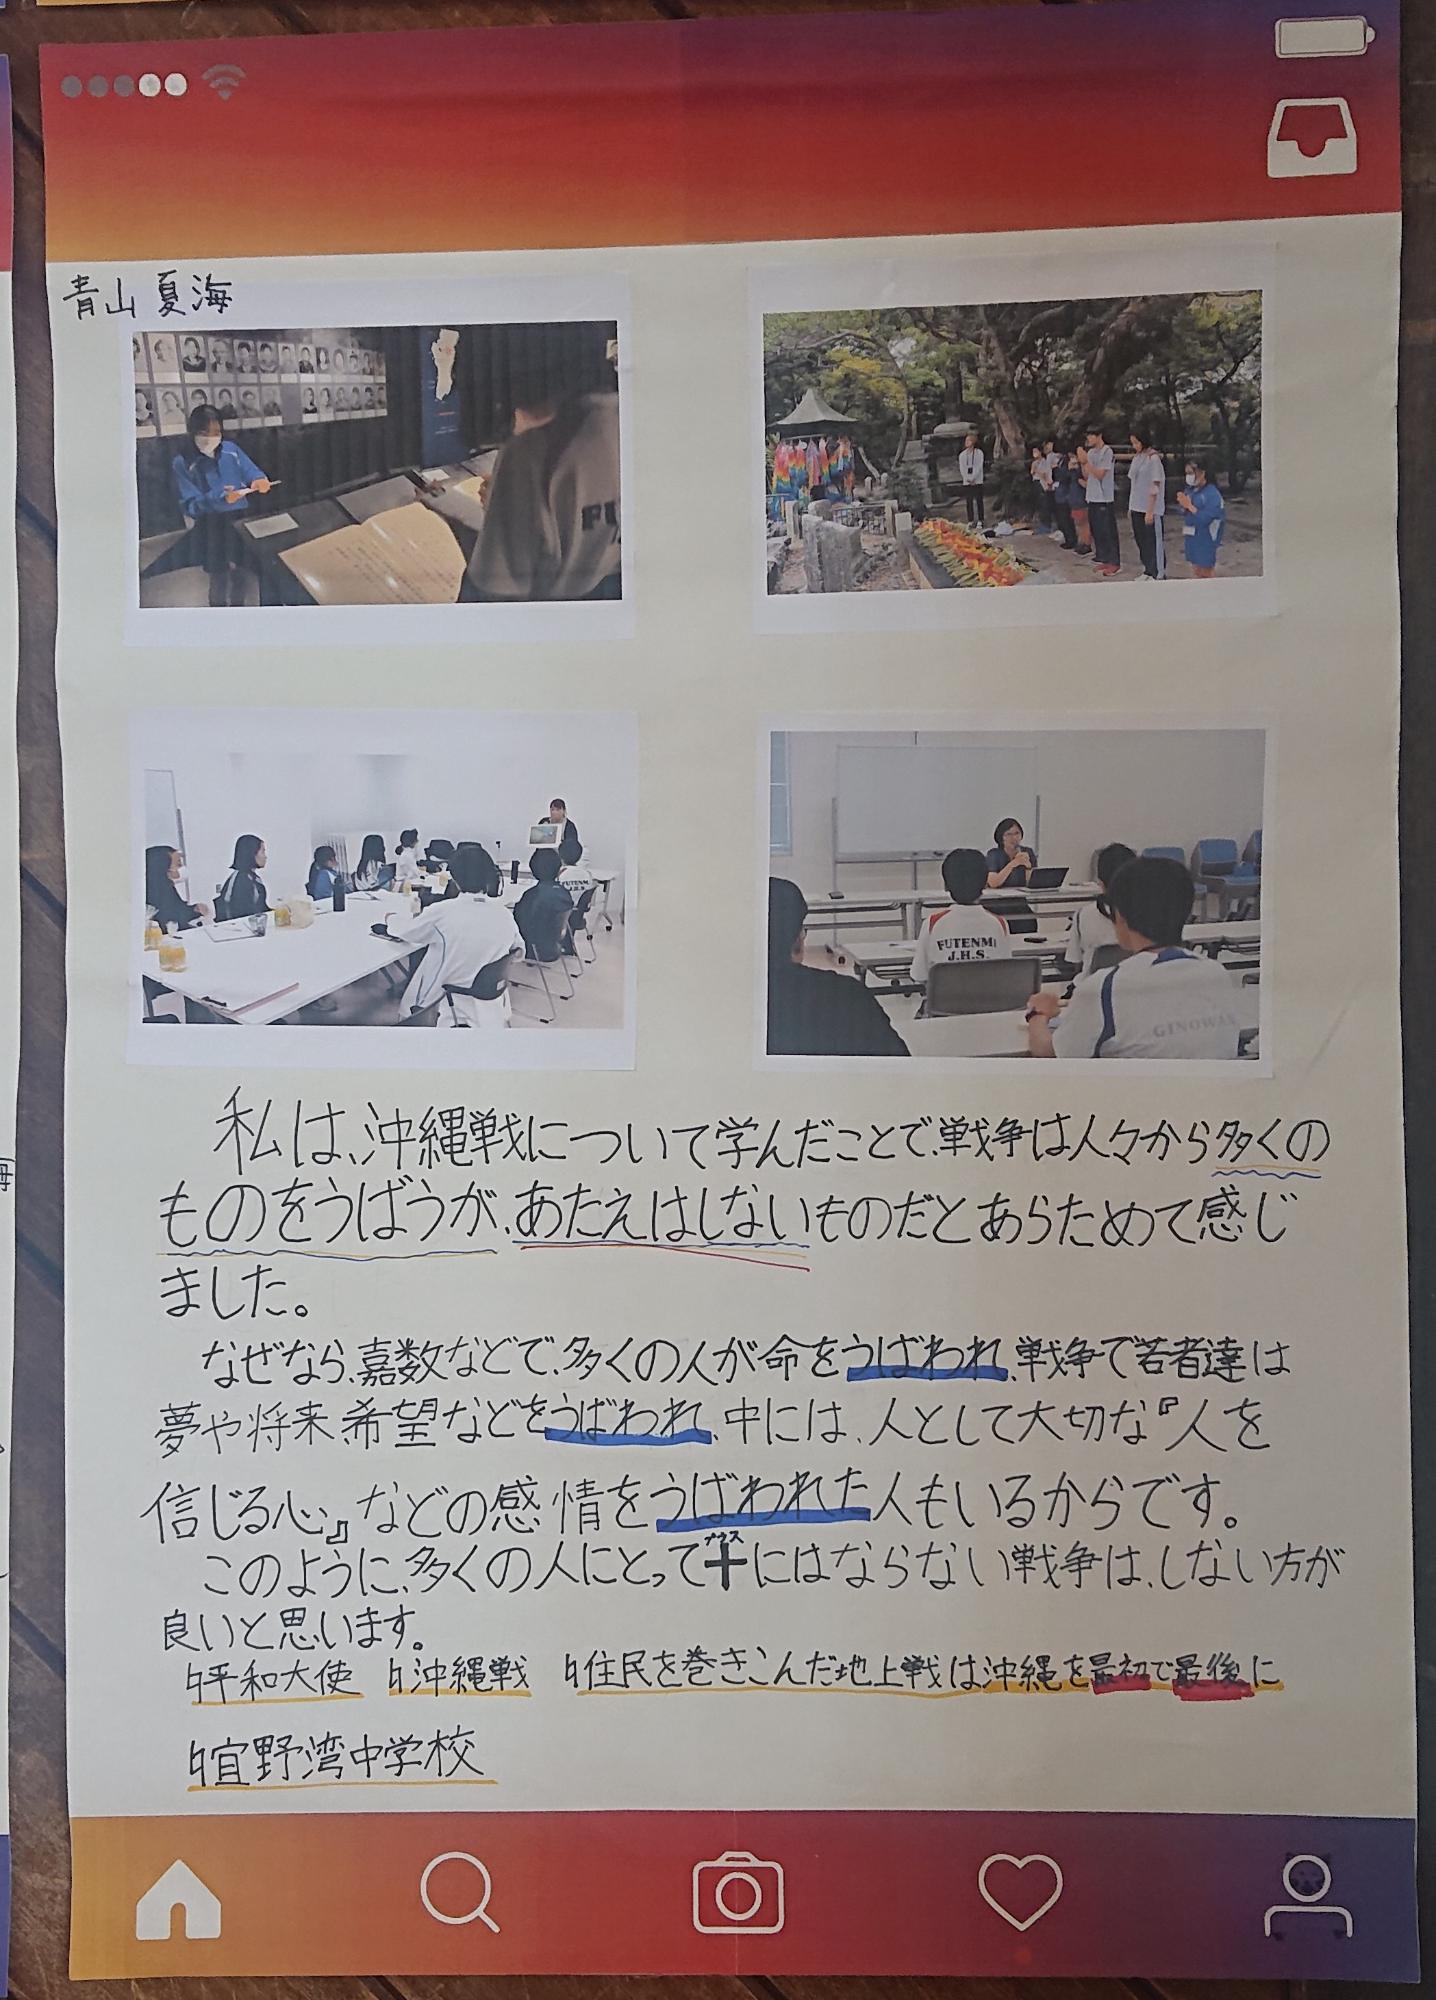 青山 夏海
FUTENM
J.H.S.
FUTENM
J.H.S.
GINOWAN
私は、沖縄戦について学んだことで、戦争は人々から多くの
ものをうばうが、あたえはしないものだとあらためて感じ
ました。
なぜなら、嘉数などで、多くの人が命をうばわれ、戦争で若者達は
夢や将来、希望などをうばわれ、中には、人として大切な『人を
信じる心』などの感情をうばわれた人もいるからです。
このように、多くの人にとって十プラスにはならない戦争は、しない方が
良いと思います。
#平和大使 #沖縄戦 #住民を巻きこんだ地上戦は沖縄を最初で最後に
#宜野湾中学校